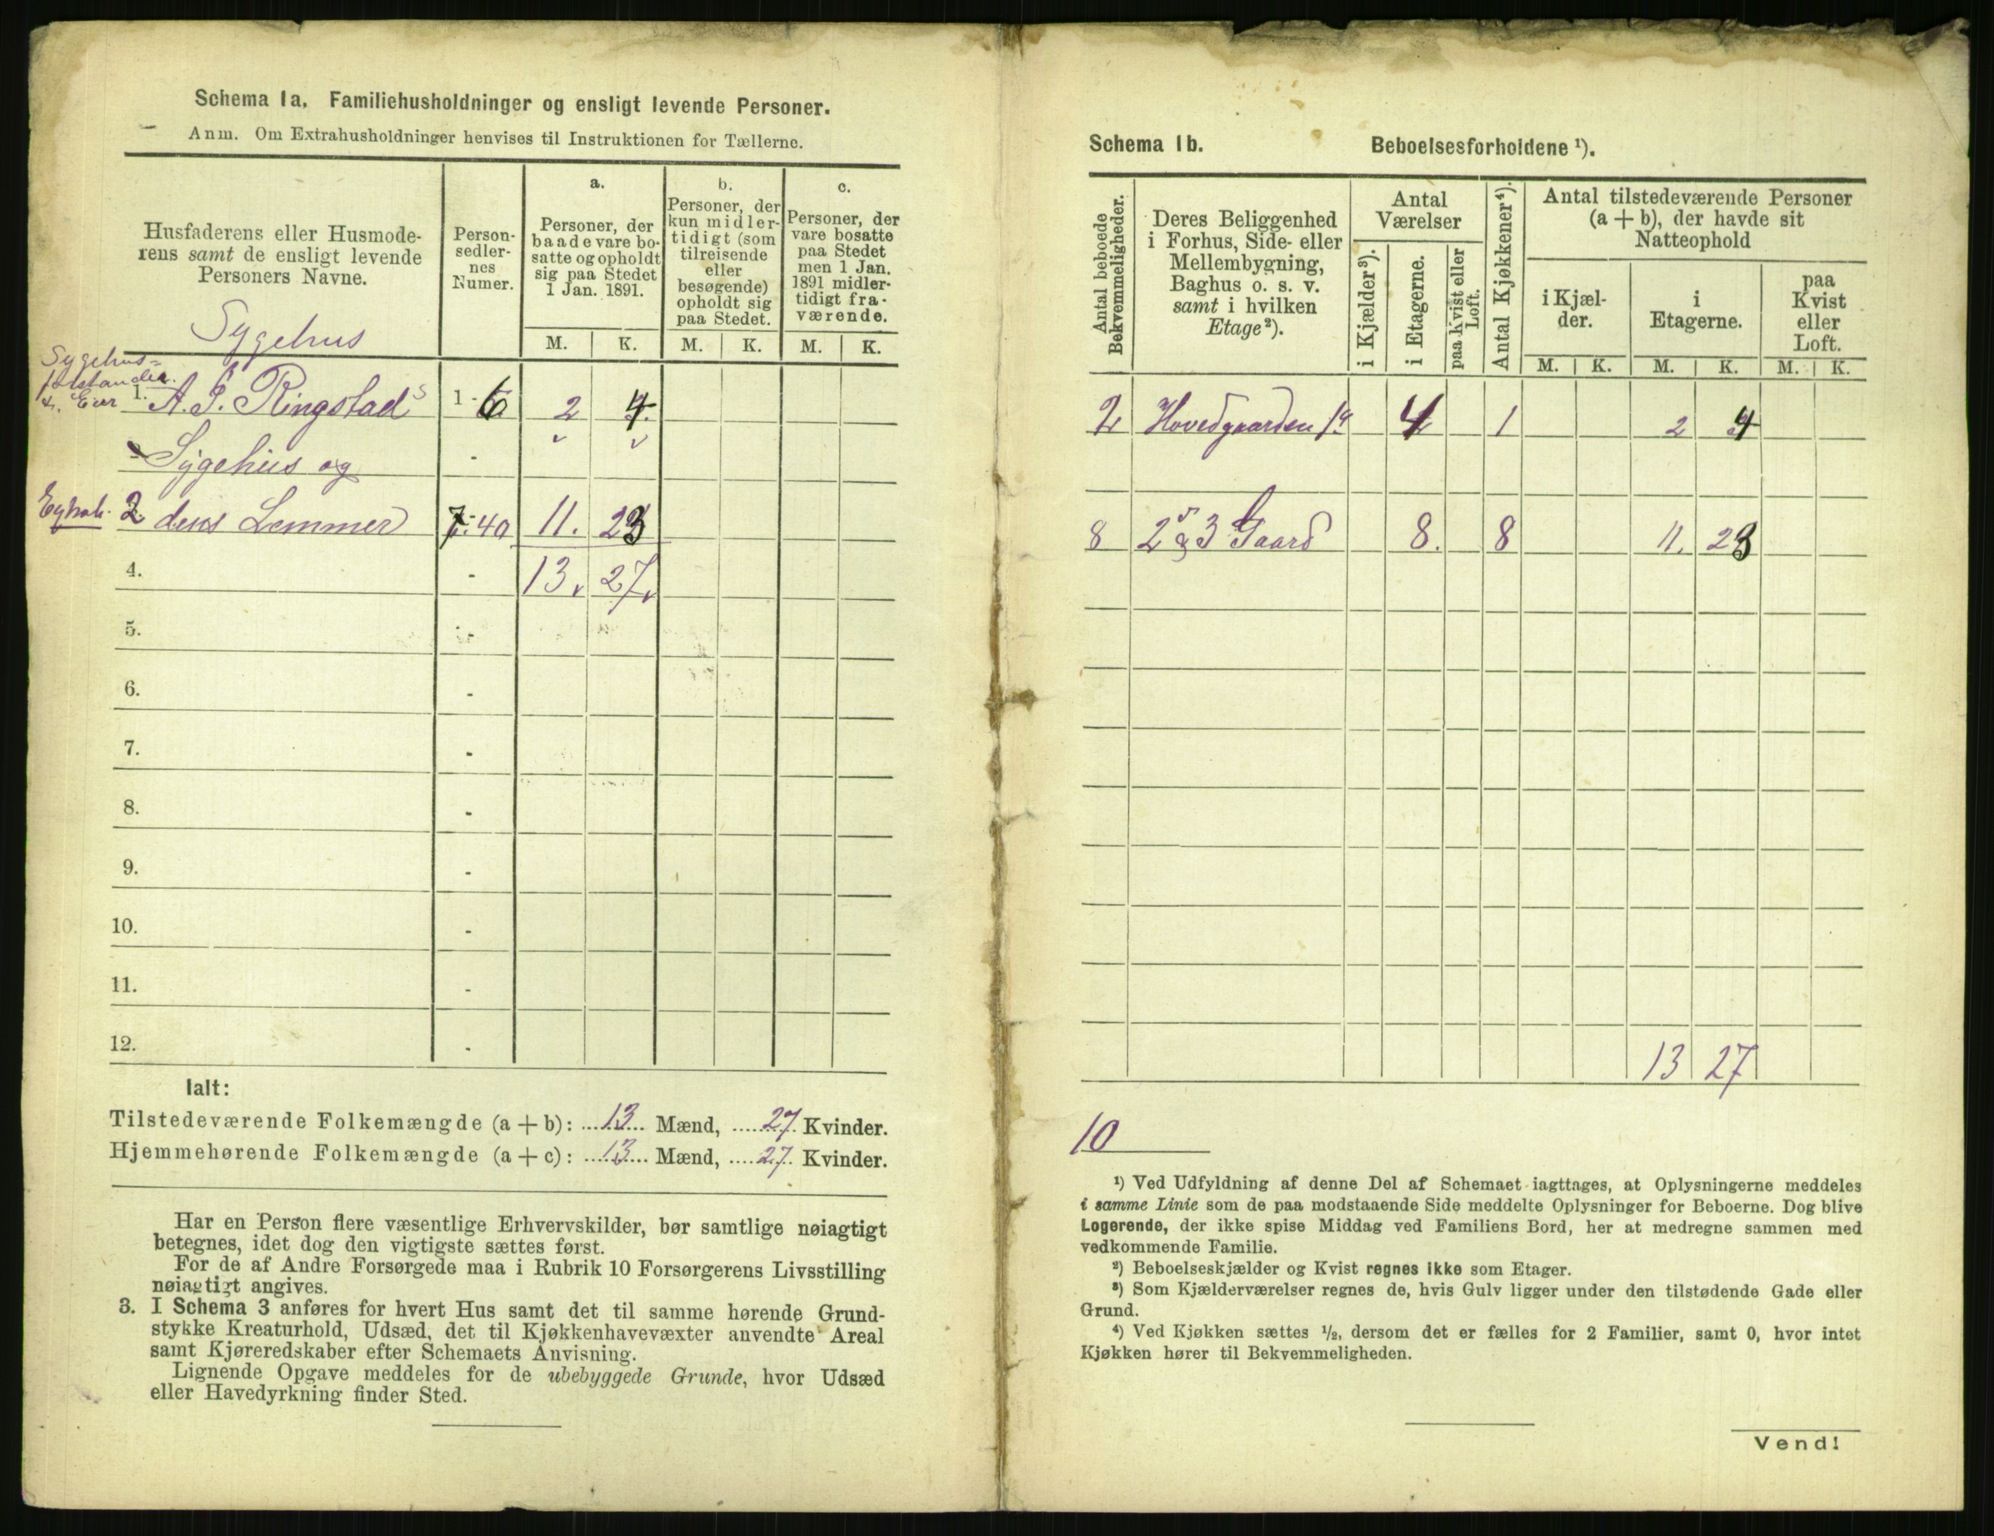 Schema 1a. Familiehusholdninger og ensligt levende Personer.
Anm. Om Extrahusholdninger henvises til Instruktionen for Tællerne.
Husfaderens eller Husmode-
rens samt de ensligt levende
Personers Navne.
Person-
sedler-
nes
Numer.
a.
Personer, der
baade vare bo-
satte og opholdt
sig paa Stedet
1 Jan. 1891.
b.
Personer, der
kun midler-
tidigt (som
tilreisende
eller
besøgende)
opholdt sig
paa Stedet.
c.
Personer, der
vare bosatte
paa Stedet
men 1 Jan.
1891 midler-
tidigt fra-
værende.
M. K. M. K. M. K.
Sygehus
Sygehus-
& Eier
1. A. Ringstads 1 - 6 2 4
Sygehus og -
2 dens Lemmer 7-40 11. 23
4. - 13. 27.
5. -
6. -
7. -
8. -
9. -
10. -
11. -
12. -
Ialt:
Tilstedeværende Folkemængde (a + b): 13 Mænd, 27 Kvinder.
Hjemmehørende Folkemængde (a + c): 13 Mænd, 27 Kvinder.
Har en Person flere væsentlige Erhvervskilder, bør samtlige nøiagtigt
betegnes, idet dog den vigtigste sættes først.
For de af Andre Forsørgede maa i Rubrik 10 Forsørgerens Livsstilling
nøiagtigt angives.
3. I Schema 3 anføres for hvert Hus samt det til samme hørende Grund-
stykke Kreaturhold, Udsæd, det til Kjøkkenhavevæxter anvendte Areal
samt Kjøreredskaber efter Schemaets Anvisning.
Lignende Opgave meddeles for de ubebyggede Grunde, hvor Udsæd
eller Havedyrkning finder Sted.
Schema 1b. Beboelsesforholdene ¹).
Antal beboede
Bekvemmeligheder.
Deres Beliggenhed
i Forhus, Side- eller
Mellembygning,
Baghus o. s. v.
samt i hvilken
Etage ²).
Antal
Værelser
i Kjælder ³).
i Etagerne.
paa Kvist eller
Loft.
Antal Kjøkkener ⁴).
Antal tilstedeværende Personer
(a + b), der havde sit
Natteophold
i Kjæl-
der.
i
Etagerne.
paa
Kvist
eller
Loft.
M. K. M. K. M. K.
2 Hovedgaarden 1a 4 1 2 4
8 2 & 3 Gaard 8. 8 11. 23
13 27
10
¹) Ved Udfyldning af denne Del af Schemaet iagttages, at Oplysningerne meddeles
i samme Linie som de paa modstaaende Side meddelte Oplysninger for Beboerne. Dog blive
Logerende, der ikke spise Middag ved Familiens Bord, her at medregne sammen med
vedkommende Familie.
²) Beboelseskjælder og Kvist regnes ikke som Etager.
³) Som Kjælderværelser regnes de, hvis Gulv ligger under den tilstødende Gade eller
Grund.
⁴) Ved Kjøkken sættes ½, dersom det er fælles for 2 Familier, samt 0, hvor intet
Kjøkken hører til Bekvemmeligheden.
Vend!